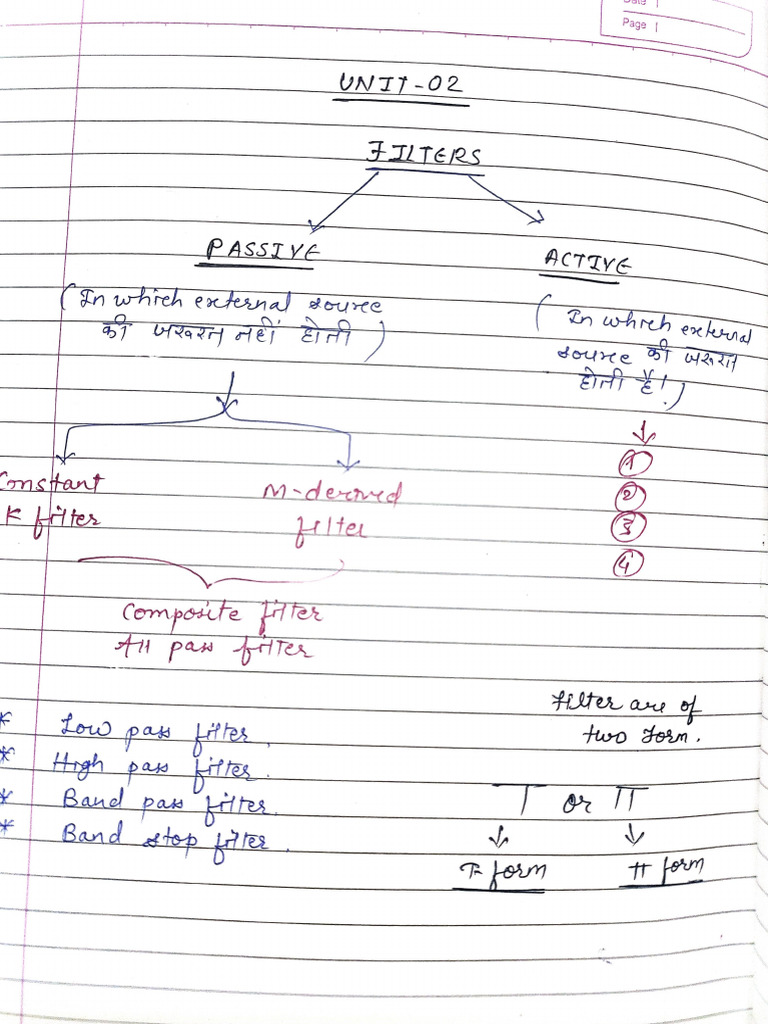 Date
Page
UNIT-02
FILTERS
PASSIVE
ACTIVE
(In which external source
की जरूरत नहीं होती)
(In which external
source की जरूरत
होती है।)
Constant
K filter
M-derived
filter
1
2
3
4
Composite filter
All pass filter
Filter are of
two Form.
* Low pass filter.
* High pass filter.
* Band pass filter.
* Band stop filter.
T or π
T form
π form